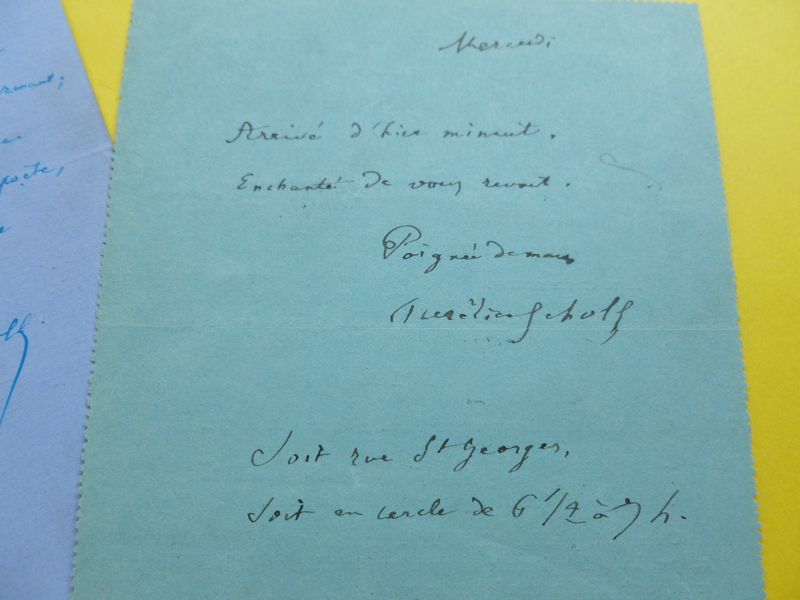 ervant;
poète,
Mercredi
Arrivé d'hier minuit.
Enchanté de vous revoir.
Poignée de main
Aurélien Scholl
Soit rue St Georges,
Soit au cercle de 6 1/2 à 7 h.